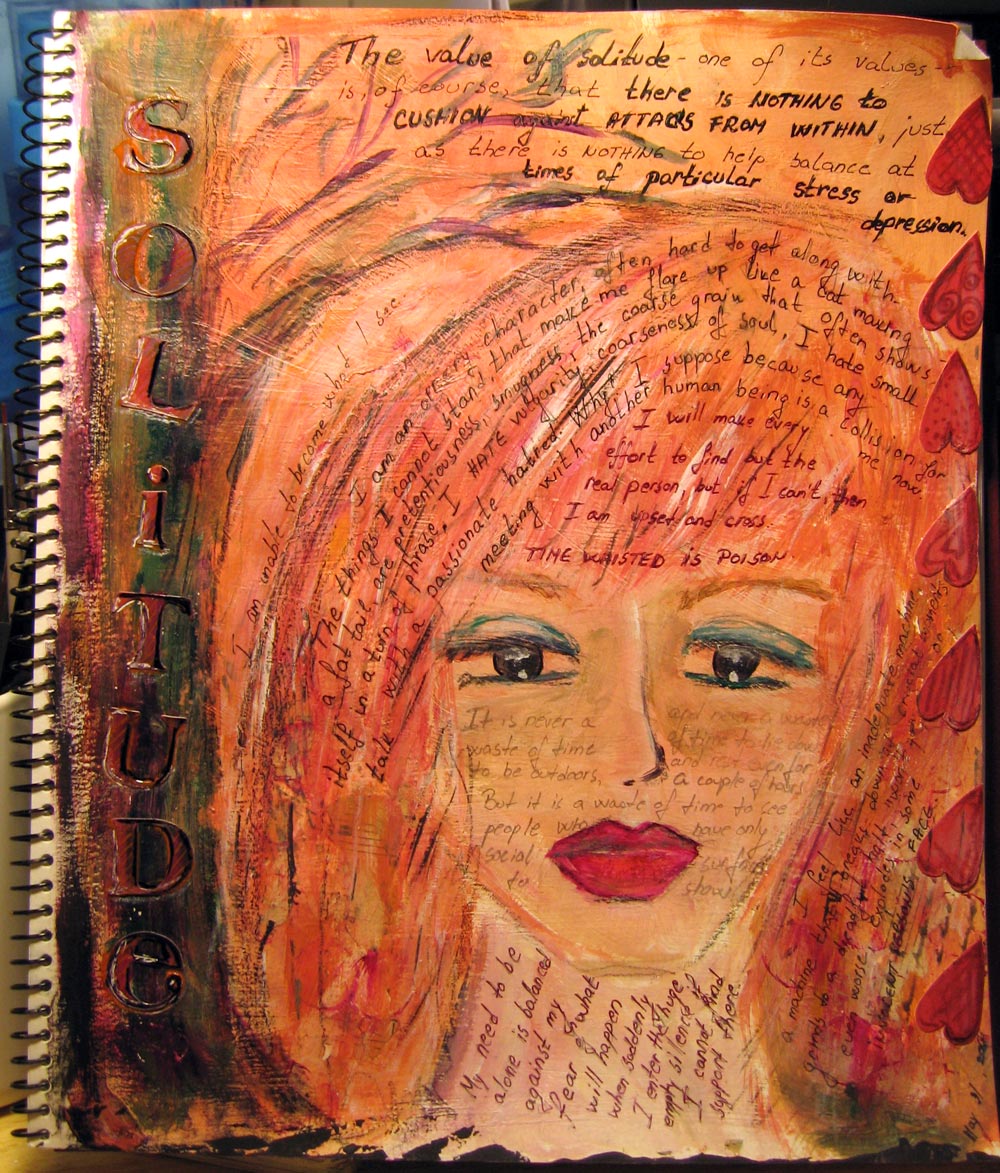 SOLiTUDe
The value of solitude - one of its values -
is, of course, that there is NOTHING to
CUSHION against ATTACKS FROM WITHIN, just
as there is NOTHING to help balance at
times of particular stress or
depression.
I am unable to become what I see.
I am an ornery character, often hard to get along with.
The things I cannot stand, that make me flare up like a cat making
a fat tail, are pretentiousness, smugness, the coarse grain that often shows
itself in a turn of phrase. I HATE vulgarity, coarseness of soul, I hate small
talk with a passionate hatred. Why? I suppose because any
meeting with another human being is a collision for
me now.
I will make every
effort to find out the
real person, but if I can't, then
I am upset and cross.
TIME WAISTED is POISON
It is never a
waste of time
to be outdoors,
and never a waste
of time to lie down
and rest even for
a couple of hours
But it is a waste of time to see
people who have only
social surface
to show.
My need to be
alone is balanced
against my
fear of what
will happen
when suddenly
I enter the huge
empty silence if
I cannot find
support there.
I feel like an inadequate machine,
a machine that breaks down at crucial moments
grinds to a dreadful halt, "won't go" or
even worse explodes in some
innocent person's FACE.
May 31